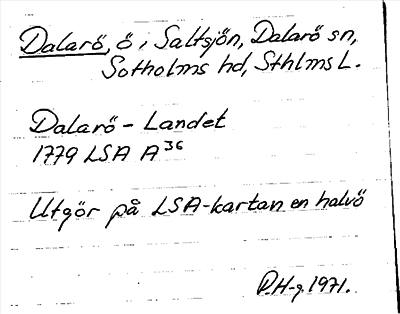 Dalarö, ö i Saltsjön, Dalarö sn,
Sotholms hd, Sthlms L.
Dalarö - Landet
1779 LSA A36
Utgör på LSA-kartan en halvö
P.H-g. 1971.